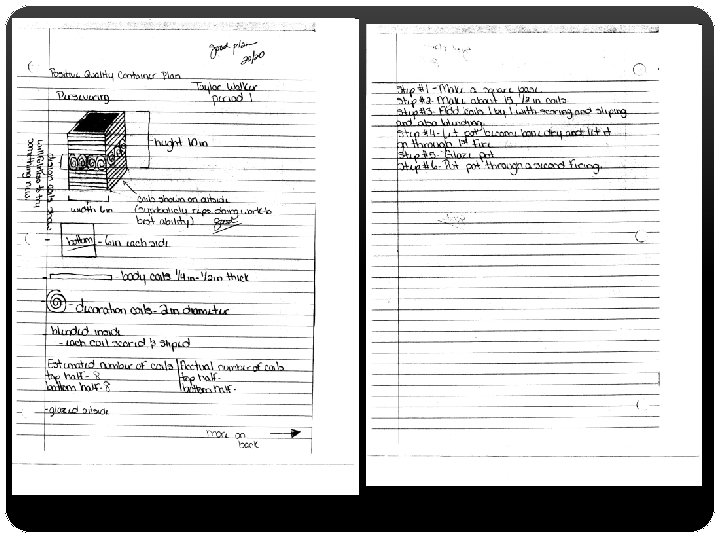 good plan
20/20
Positive Quality Container Plan
Taylor Walker
period 1
Persevering
height 10in
width 6in
coils shown on outside
(symbolicly reps doing work to
best ability) good
bottom - 6in each side
- body coils 1/4in-1/2in thick
- decoration coils - 2in diameter
- blended inside
- each coil scored & sliped
Estimated number of coils
top half - 8
bottom half - 8
Actual number of coils
top half -
bottom half -
- glazed
more on
back
Step #1 - Make a square base
Step #2 - Make about 15, 1/2in coils
Step #3 - Add coils 1 by 1 with scoring and sliping
and also blending
Step #4 - Let pot become bone dry and let it
go through 1st fire
Step #5 - Glaze pot
Step #6 - Put pot through a second firing.